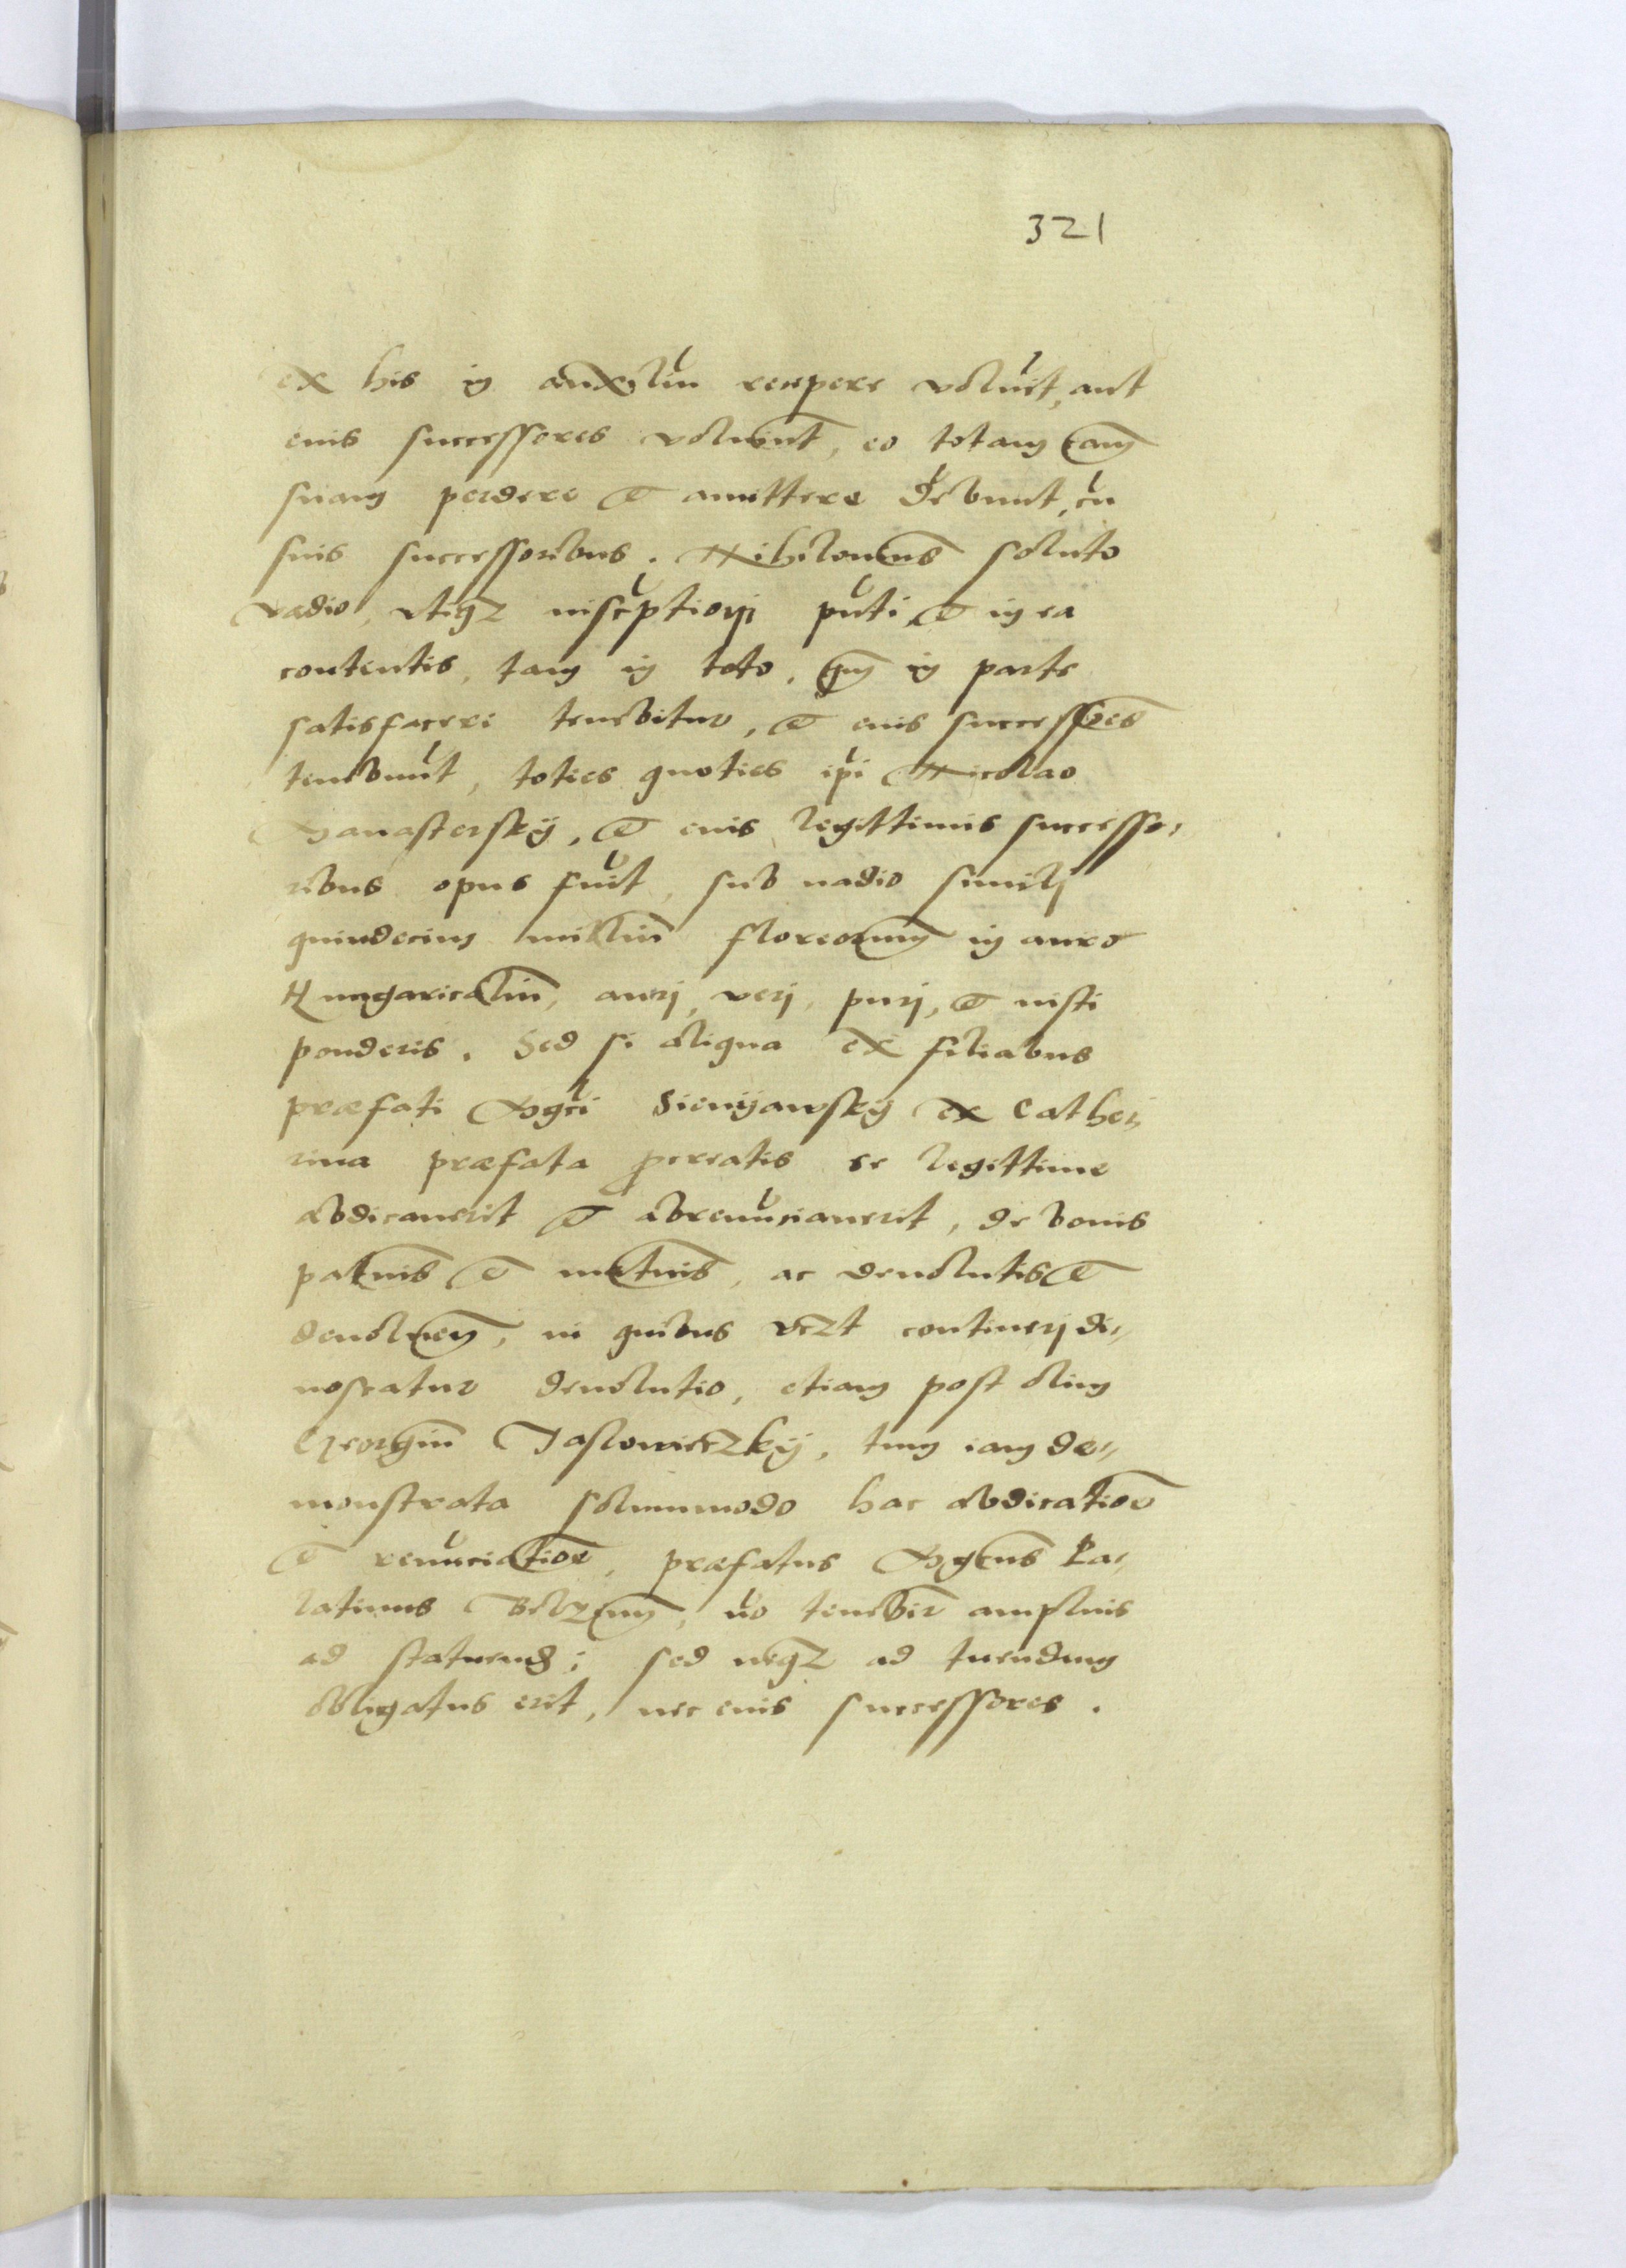 321
ex his in auxiliu recipere voluerit, aut
eius successores voluerint, eo totam cam
suam perdere et amittere debunt, cu
suis successoribus. Nihilominus soluto
vadio, utiqz inscriptioni pnti, et in ea
contentis, tam in toto, qm in parte
satisfacere tenebitur, et eius successores
tenebunt, toties quoties ipi Nicolao
Manasterskÿ, et eius legittimis successo,,
ribus opus fuit, sub vadio simili
quindecim milliu florenorum in auro
Hungaricaliu, aurj, verj, purj, et iusti
ponderis. Sed si aliqua ex filiabus
præfati Mgci Sienÿawskÿ ex Cathe,,
rina præfata procreatis se legittime
abdicauerit et abrenuciauerit, de bonis
paternis et maternis, ac deuolutis et
deuoluen, in quibus vczt continerj di,,
noscatur deuolutio, etiam post olim
Georgiu Jaslowieczkÿ, tum iam de,,
monstrata solummodo hac abdicatione
et renuciatione, præfatus Mgcus Pa,,
latinus Belzen, no tenebir amplius
ad statuend; sed neqz ad tuendum
obligatus erit, nec eius successores.